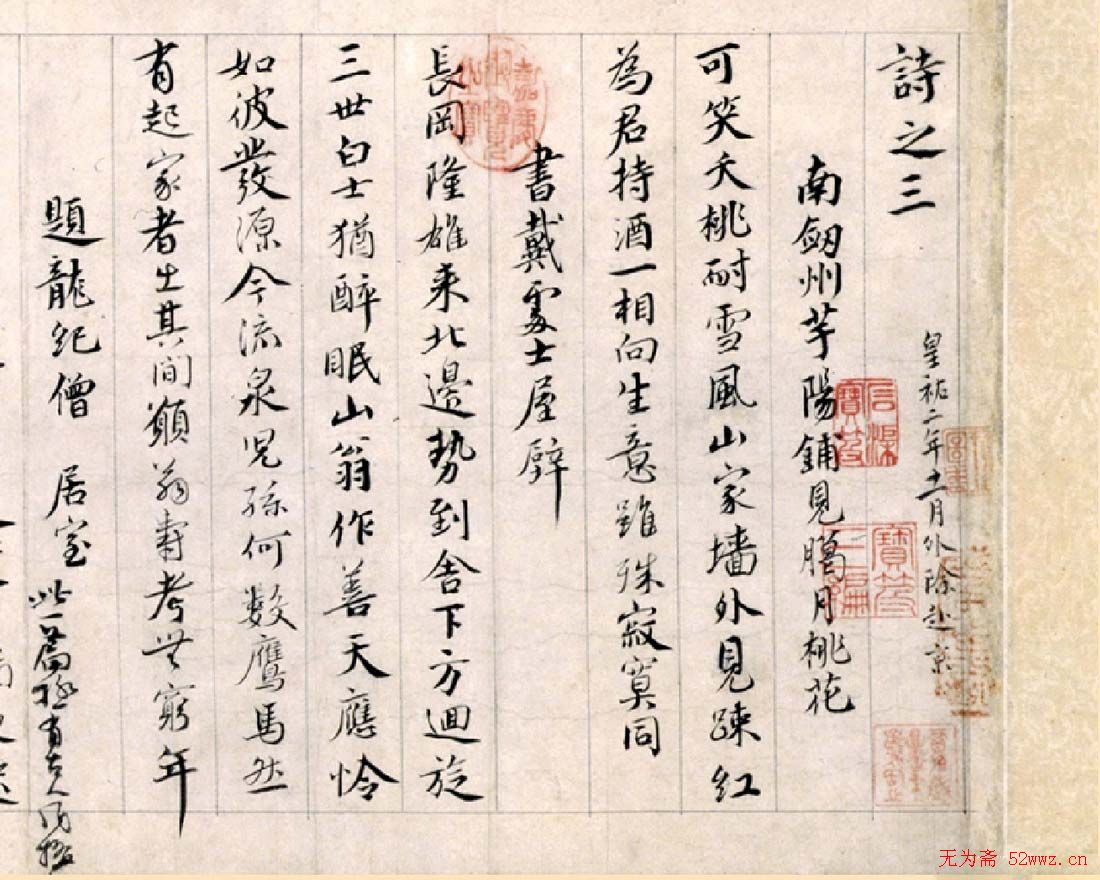 詩之三
皇祐二年十一月外除赴京
南劔州芋陽鋪見臈月桃花
可笑夭桃耐雪風山家墙外見踈红
為君持酒一相向生意雖殊寂寞同
書戴處士屋壁
長岡隆雄来北邉勢到舍下方迴旋
三世白士猶醉眠山翁作善天應怜
如彼發源今流泉児孫何數鷹馬然
有起家者出其間願翁壽考無窮年
題龍紀僧居室
此一篇極有古人風格
无为斋 52wwz.cn